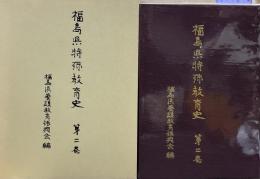 福島県特殊教育史 第二巻
福島県養護教育振興会編
福島県特殊教育史 第二巻
福島県養護教育振興会編